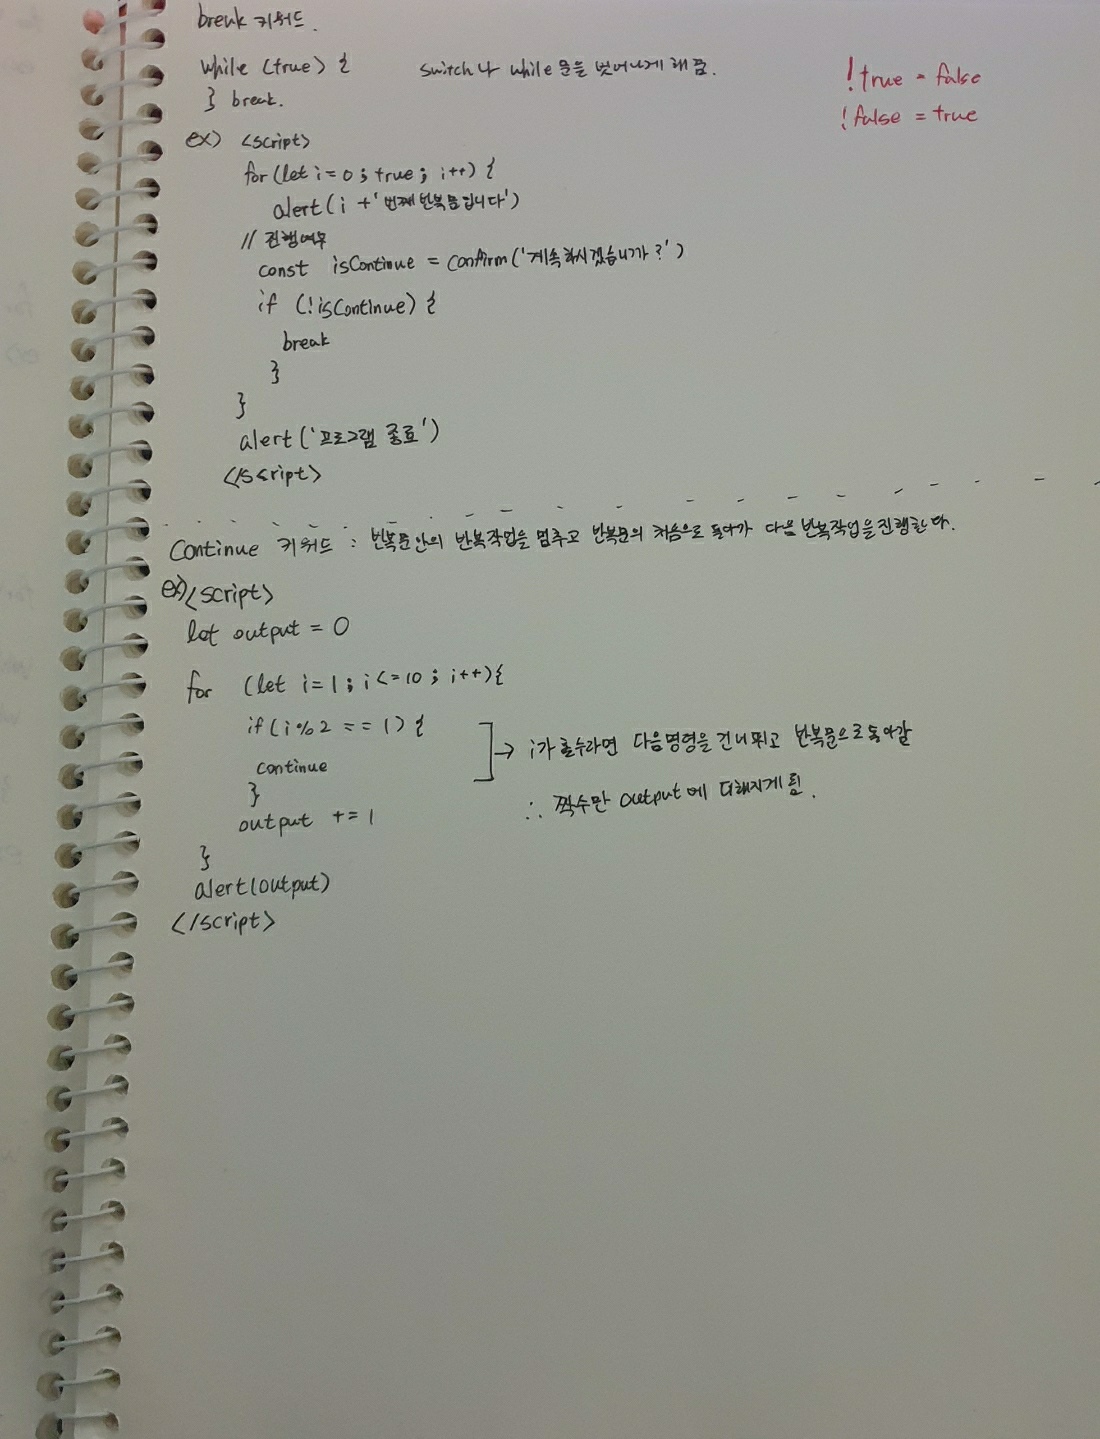 break 키워드.
while (true) {
switch나 while 문을 벗어나게 해 줌.
} break.
!true = false
!false = true
ex) <script>
for(let i=0; true; i++) {
alert(i +'번째 반복문입니다')
// 진행여부
const isContinue = confirm('계속하시겠습니까?')
if (!isContinue) {
break
}
}
alert('프로그램 종료')
</script>
Continue 키워드 : 반복문안의 반복작업을 멈추고 반복문의 처음으로 돌아가 다음 반복작업을 진행한다.
ex)<script>
let output = 0
for (let i=1; i<=10; i++){
if(i%2 == 1) {
continue
→ i가 홀수라면 다음명령을 건너뛰고 반복문으로 돌아갈
}
∴ 짝수만 output에 더해지게 됨.
output += 1
}
alert(output)
</script>